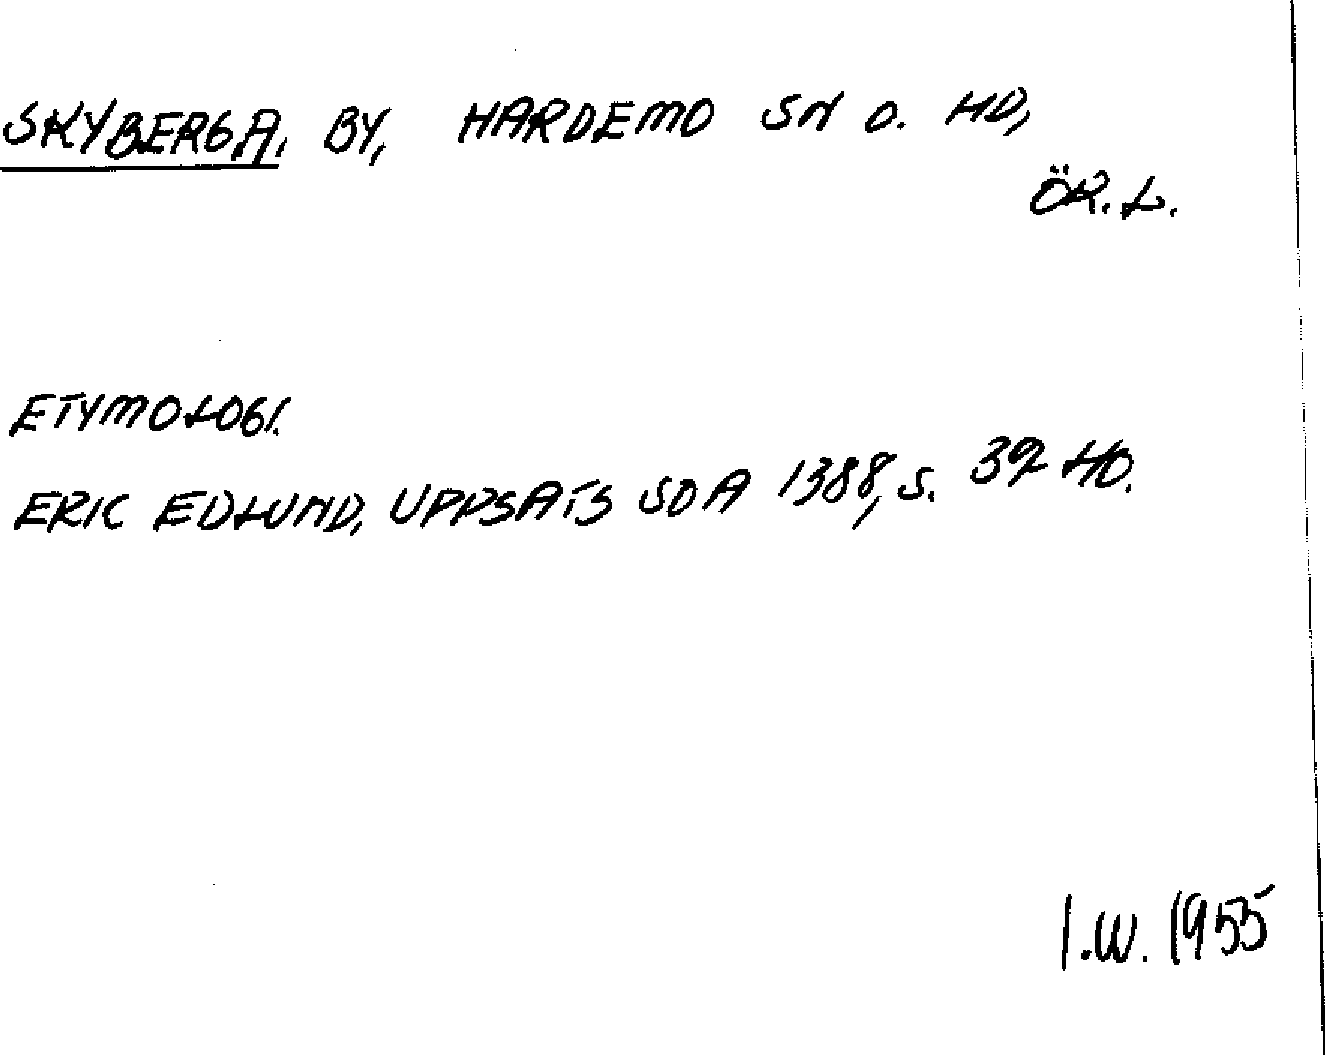 SKYBERGA, BY, HARDEMO SN O. HD,
ÖR. L.
ETYMOLOGI.
ERIC EDLUND, UPPSATS SOA 1388, S. 39
I.W. 1955